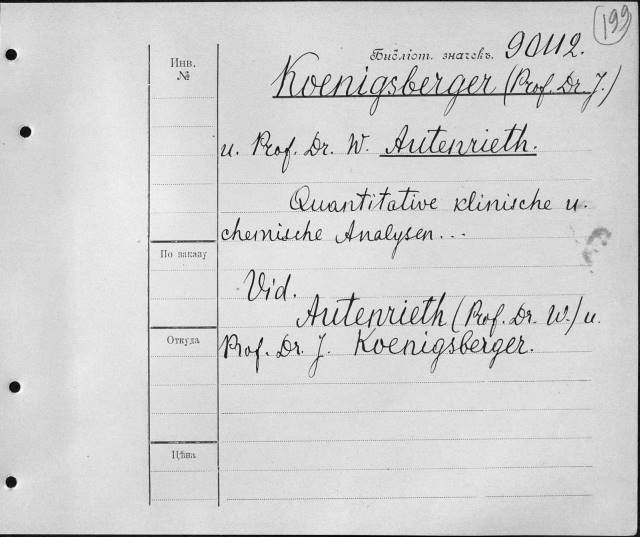 199
Библіот. значекъ. 90112.
Инв.
№
Koenigsberger (Prof. Dr. J.)
u. Prof. Dr. W. Autenrieth.
Quantitative klinische u.
chemische Analysen...
По заказу
Vid.
Autenrieth (Prof. Dr. W.) u.
Откуда
Prof. Dr. J. Koenigsberger.
Цѣна